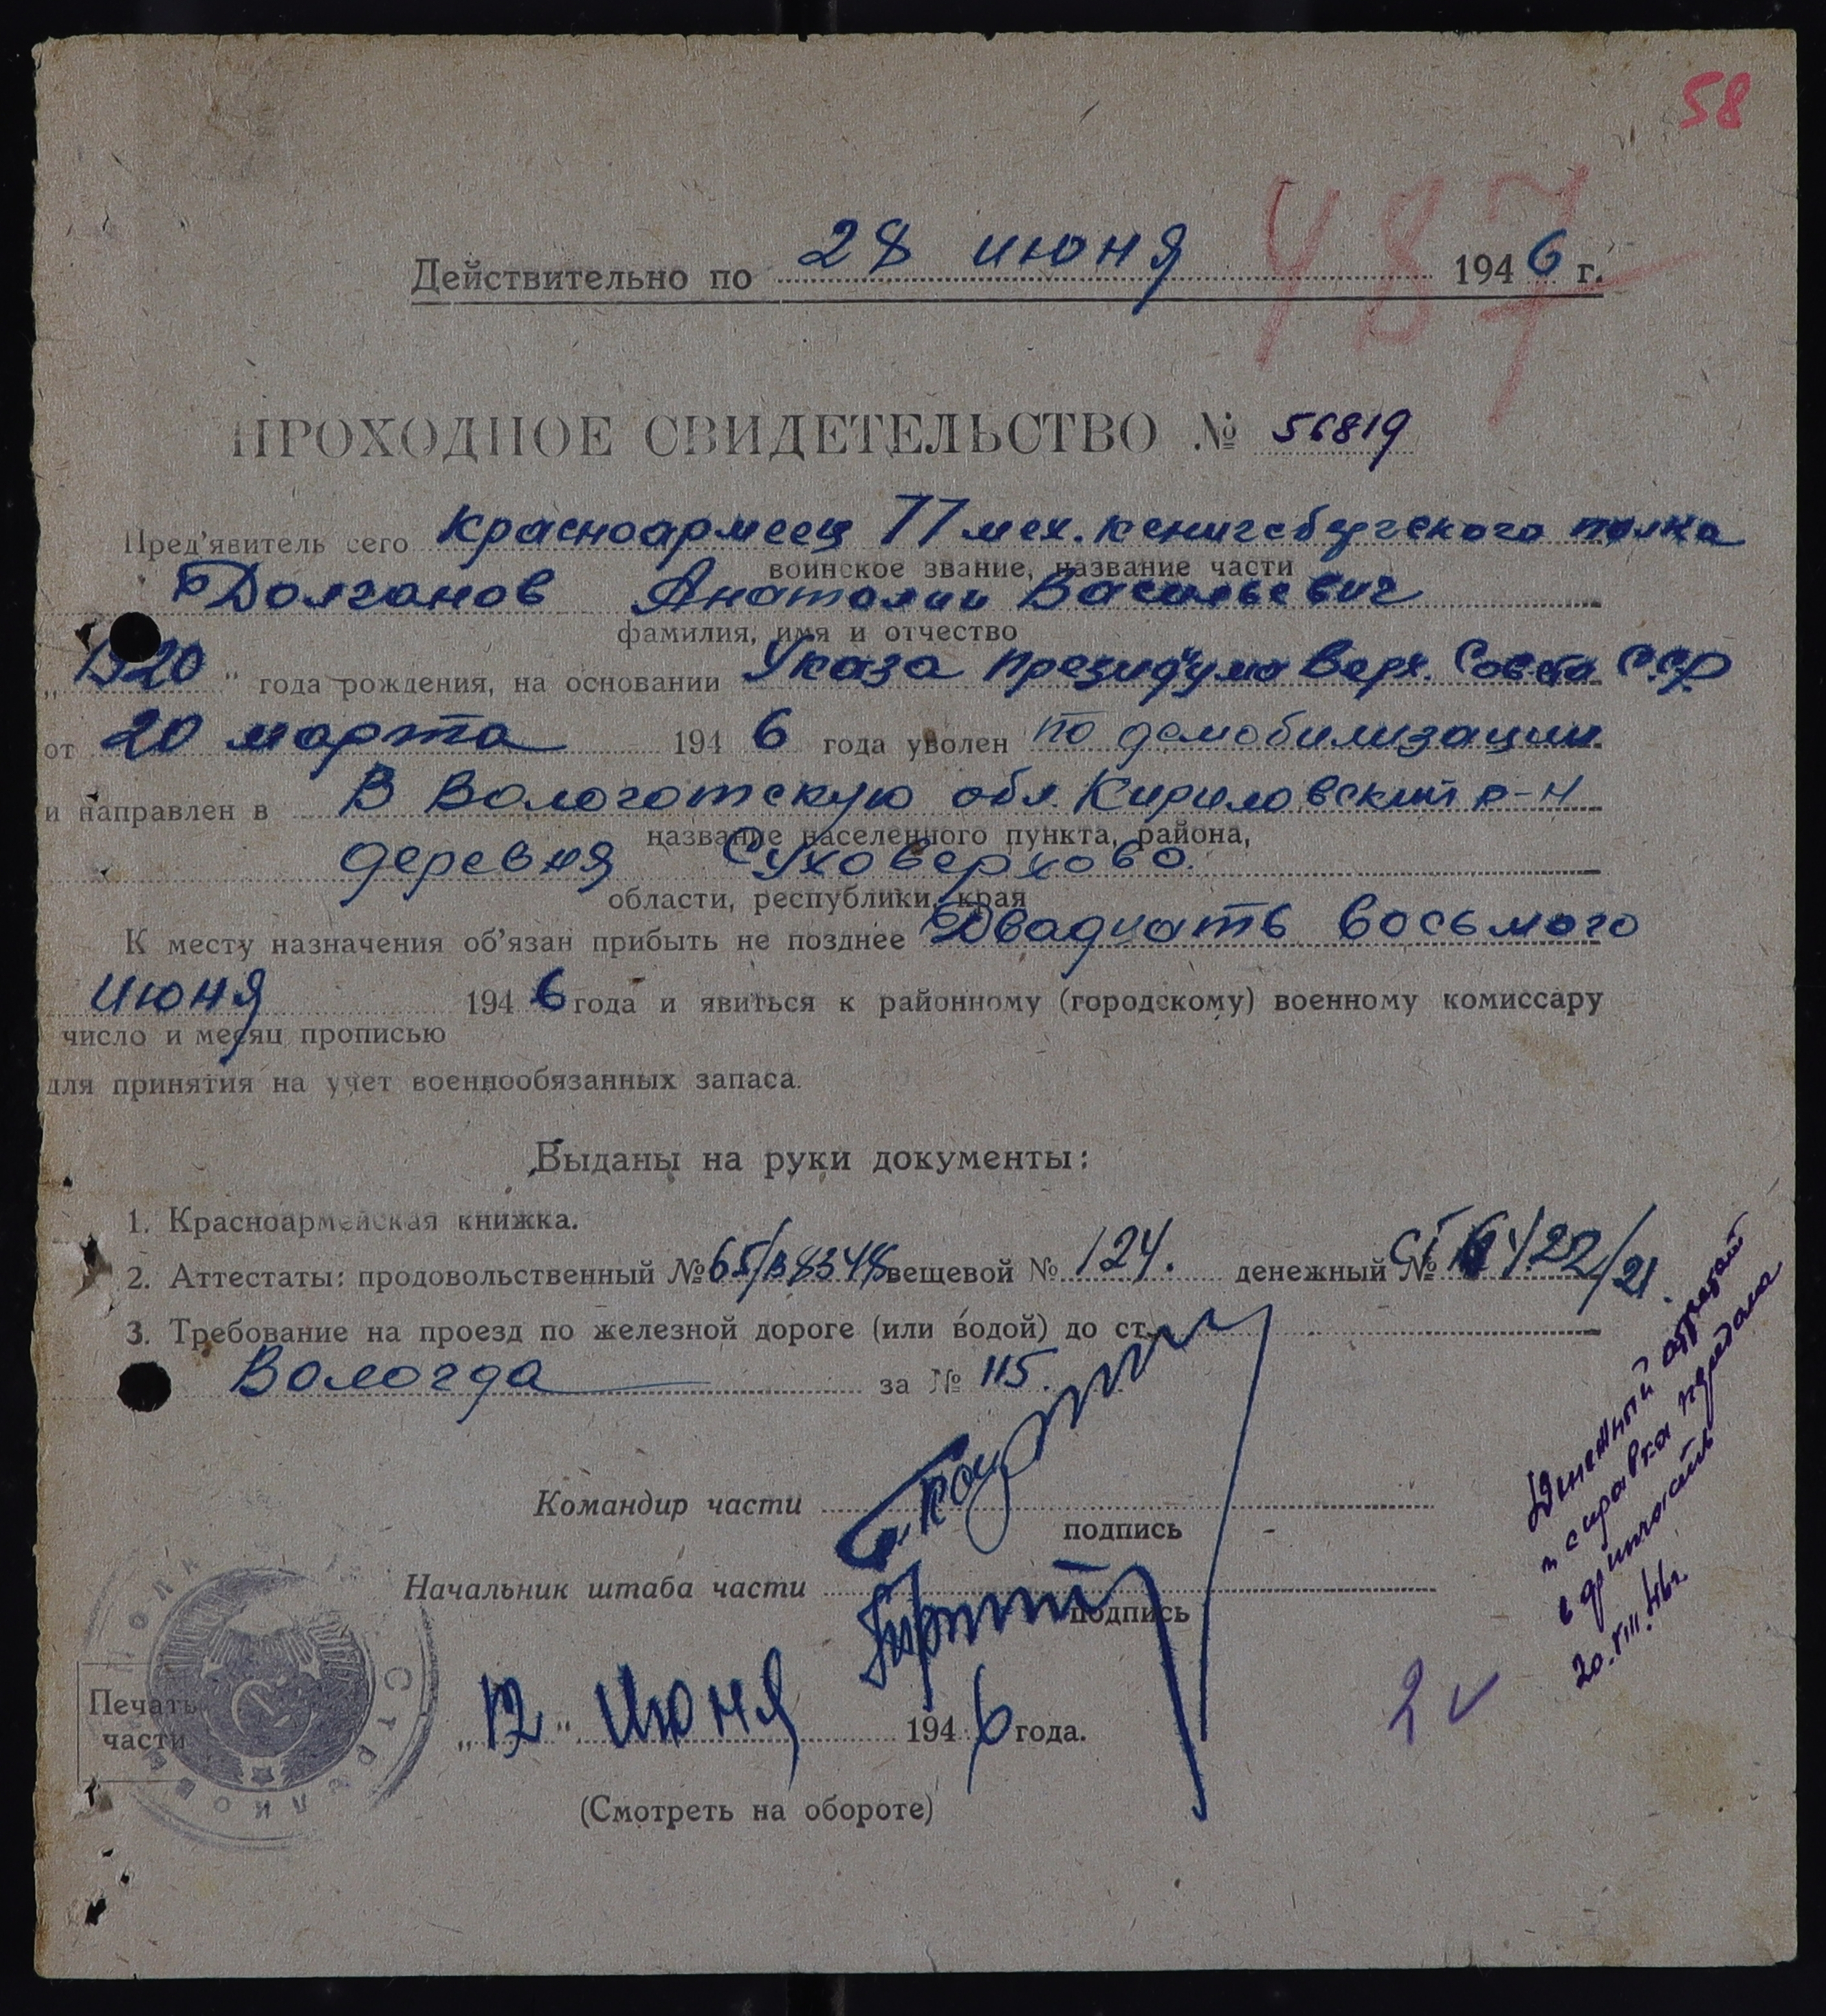 58
487
Действительно по 28 июня 1946 г.
ПРОХОДНОЕ СВИДЕТЕЛЬСТВО № 56819
Пред'явитель сего Красноармеец 77 мех. кенигсбергского полка
воинское звание, название части
Долганов Анатолии Васильевич
фамилия, имя и отчество
„1920" года рождения, на основании Указа президиума Верх. Совета ССР
от 20 марта 1946 года уволен по демобилизации
и направлен в В Вологотскую обл. Кириловский р-н
название населенного пункта, района,
деревня Суховерхово.
области, республики, края
К месту назначения об'язан прибыть не позднее Двадцать восьмого
июня 1946 года и явиться к районному (городскому) военному комиссару
число и месяц прописью
для принятия на учет военнообязанных запаса.
Выданы на руки документы:
1. Красноармейская книжка.
2. Аттестаты: продовольственный № 65/В8348 вещевой № 124. денежный №
3. Требование на проезд по железной дороге (или водой) до ст.
Вологда за № 115.
Командир части
подпись
Начальник штаба части
подпись
Печать
части
„12" Июня 1946 года.
(Смотреть на обороте)
Денежный
и справка
20.VIII.46г.
2